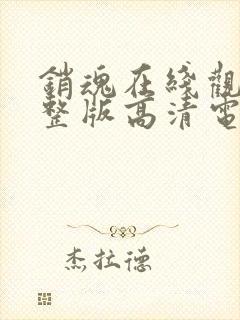 銷魂在綫觀
整版高清電
杰拉德